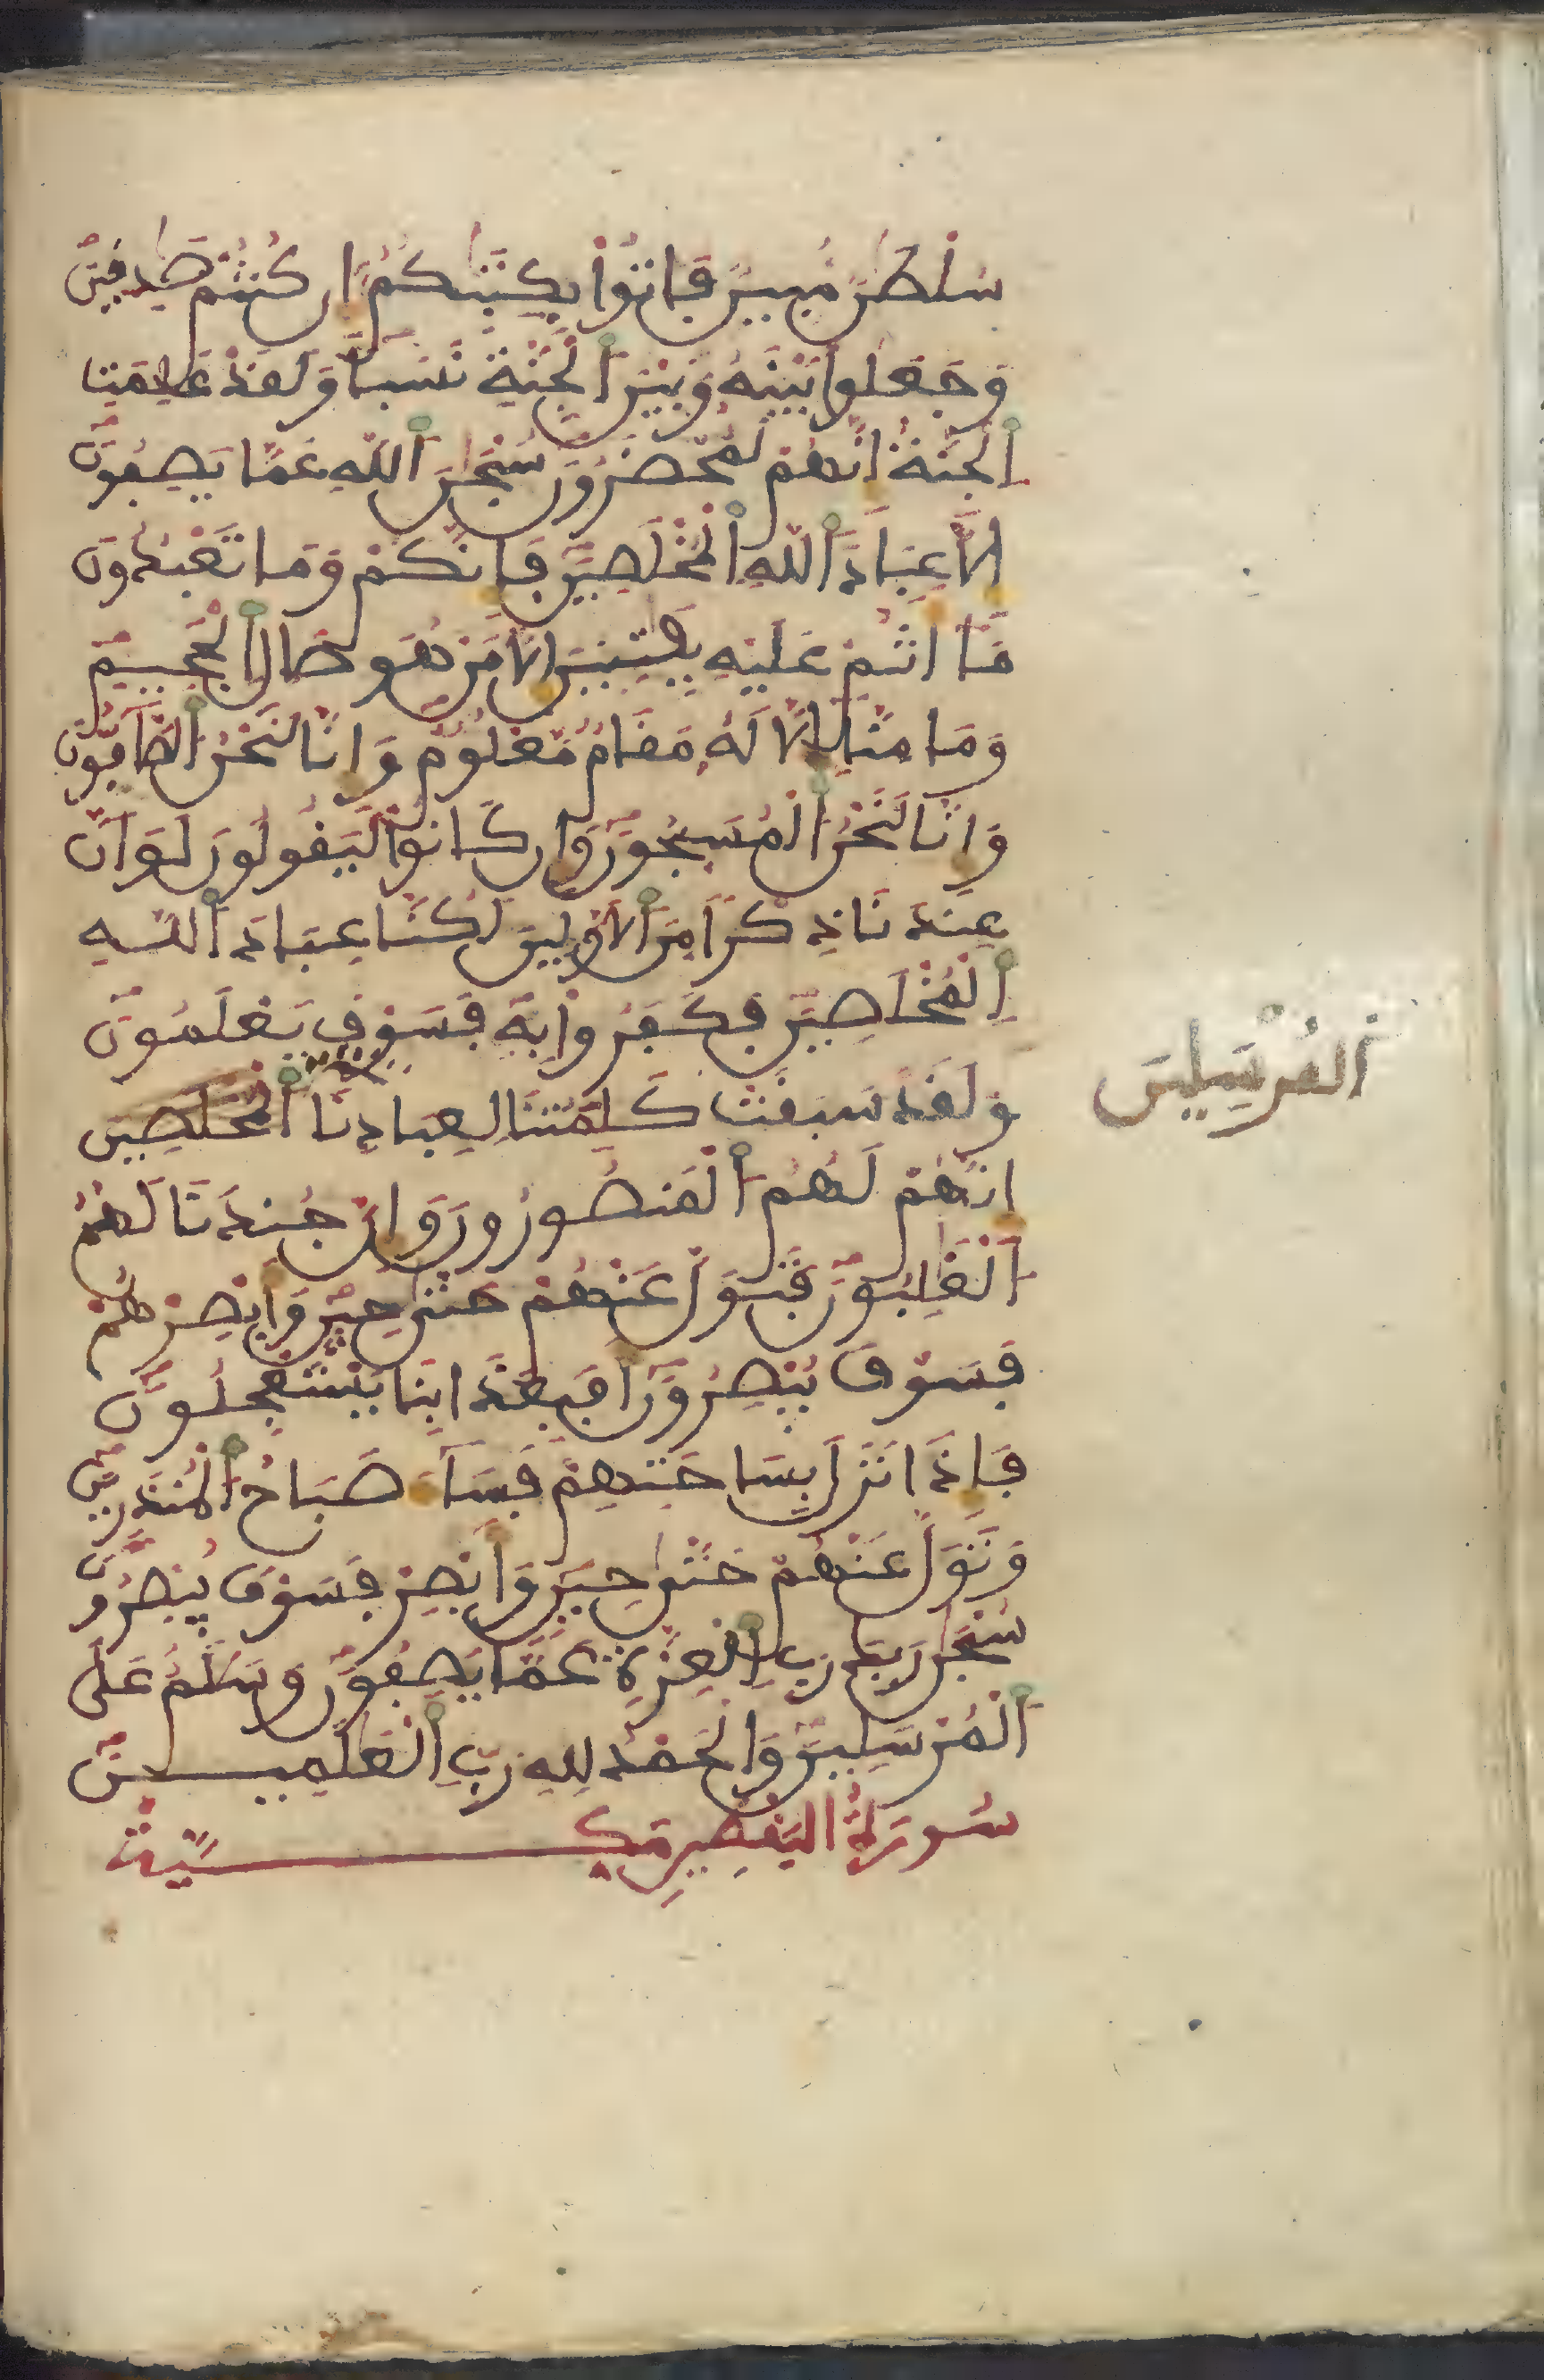 سلطن مبين فاتوا بكتبكم ان كنتم صدقين
وجعلوا بينه وبين الجنة نسبا ولقد علمت
الجنة انهم لمحضرون سبحن الله عما يصفون
الا عباد الله المخلصين فانكم وما تعبدون
ما انتم عليه بفتنين الا من هو صال الجحيم
وما منا الا له مقام معلوم وانا لنحن الصافون
وانا لنحن المسبحون وان كانوا ليقولون لو ان
عندنا ذكرا من الاولين لكنا عباد الله
المخلصين فكفروا به فسوف يعلمون
ولقد سبقت كلمتنا لعبادنا المخلصين
المرسلين
انهم لهم المنصورون وان جندنا لهم
الغلبون فتول عنهم حتى حين وابصرهم
فسوف يبصرون افبعذابنا يستعجلون
فاذا نزل بساحتهم فساء صباح المنذرين
وتول عنهم حتى حين وابصر فسوف يبصرون
سبحن ربك رب العزة عما يصفون وسلم على
المرسلين والحمد لله رب العلمين
سورة اليقطين مكية